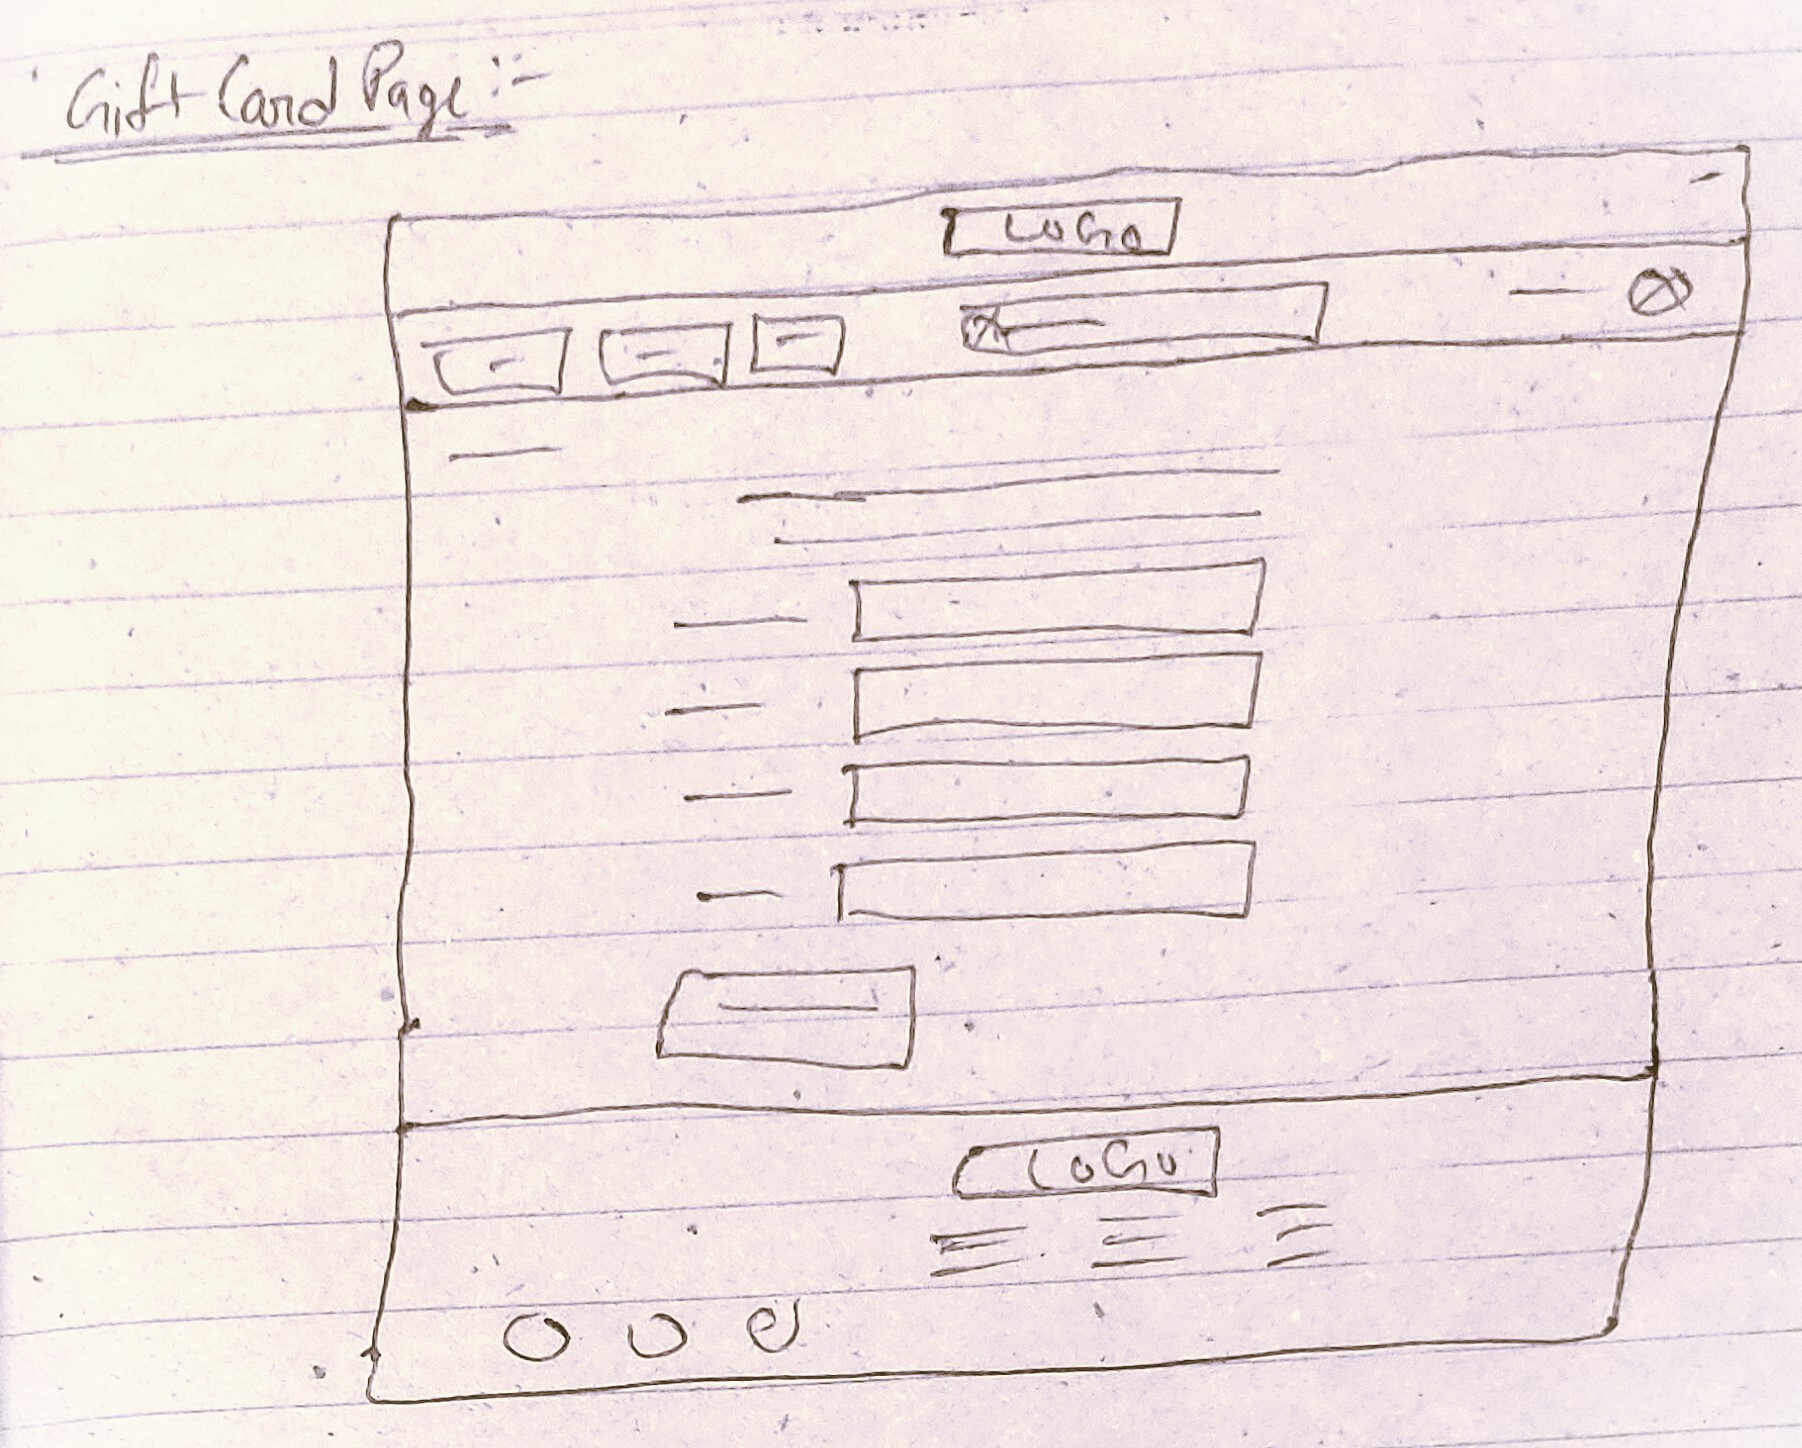 Gift Card Page :-
LOGO
LOGO